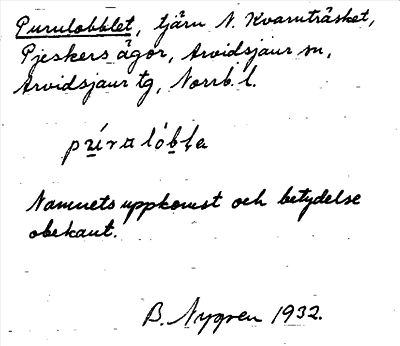 Purulobblet, tjärn N. Kvarnträsket,
Pjeskers ägor, Arvidsjaur sn,
Arvidsjaur tg, Norrb. l.
pú̲rɑ lób̲l̥a
Namnets uppkomst och betydelse
obekant.
B. Nygren 1932.